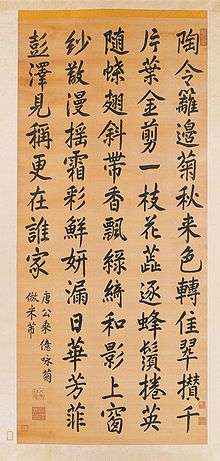 陶令籬邊菊秋来色轉佳翠攢千
片葉金剪一枝花蕋逐蜂鬚捲英
随蝶翅斜帶香飄綠綺和影上窗
紗散漫摇霜彩鮮妍漏日華芳菲
彭澤見稱更在誰家
唐公乘億詠菊
倣米芾